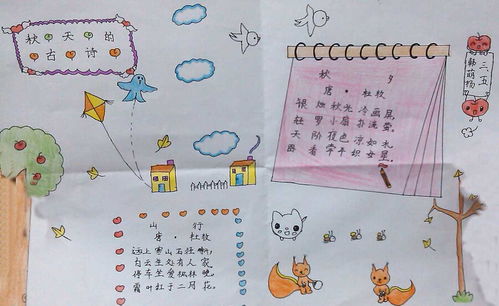 秋天的
古诗
秋 夕
唐·杜牧
银烛秋光冷画屏,
罗小扇扑流萤。
天阶夜色凉如
看牵牛织女星。
三、五
韩萌杨
山 行
唐·杜牧
远上寒山石径斜,
白云生处有人家
停车坐爱枫林晚
霜叶红于二月花。